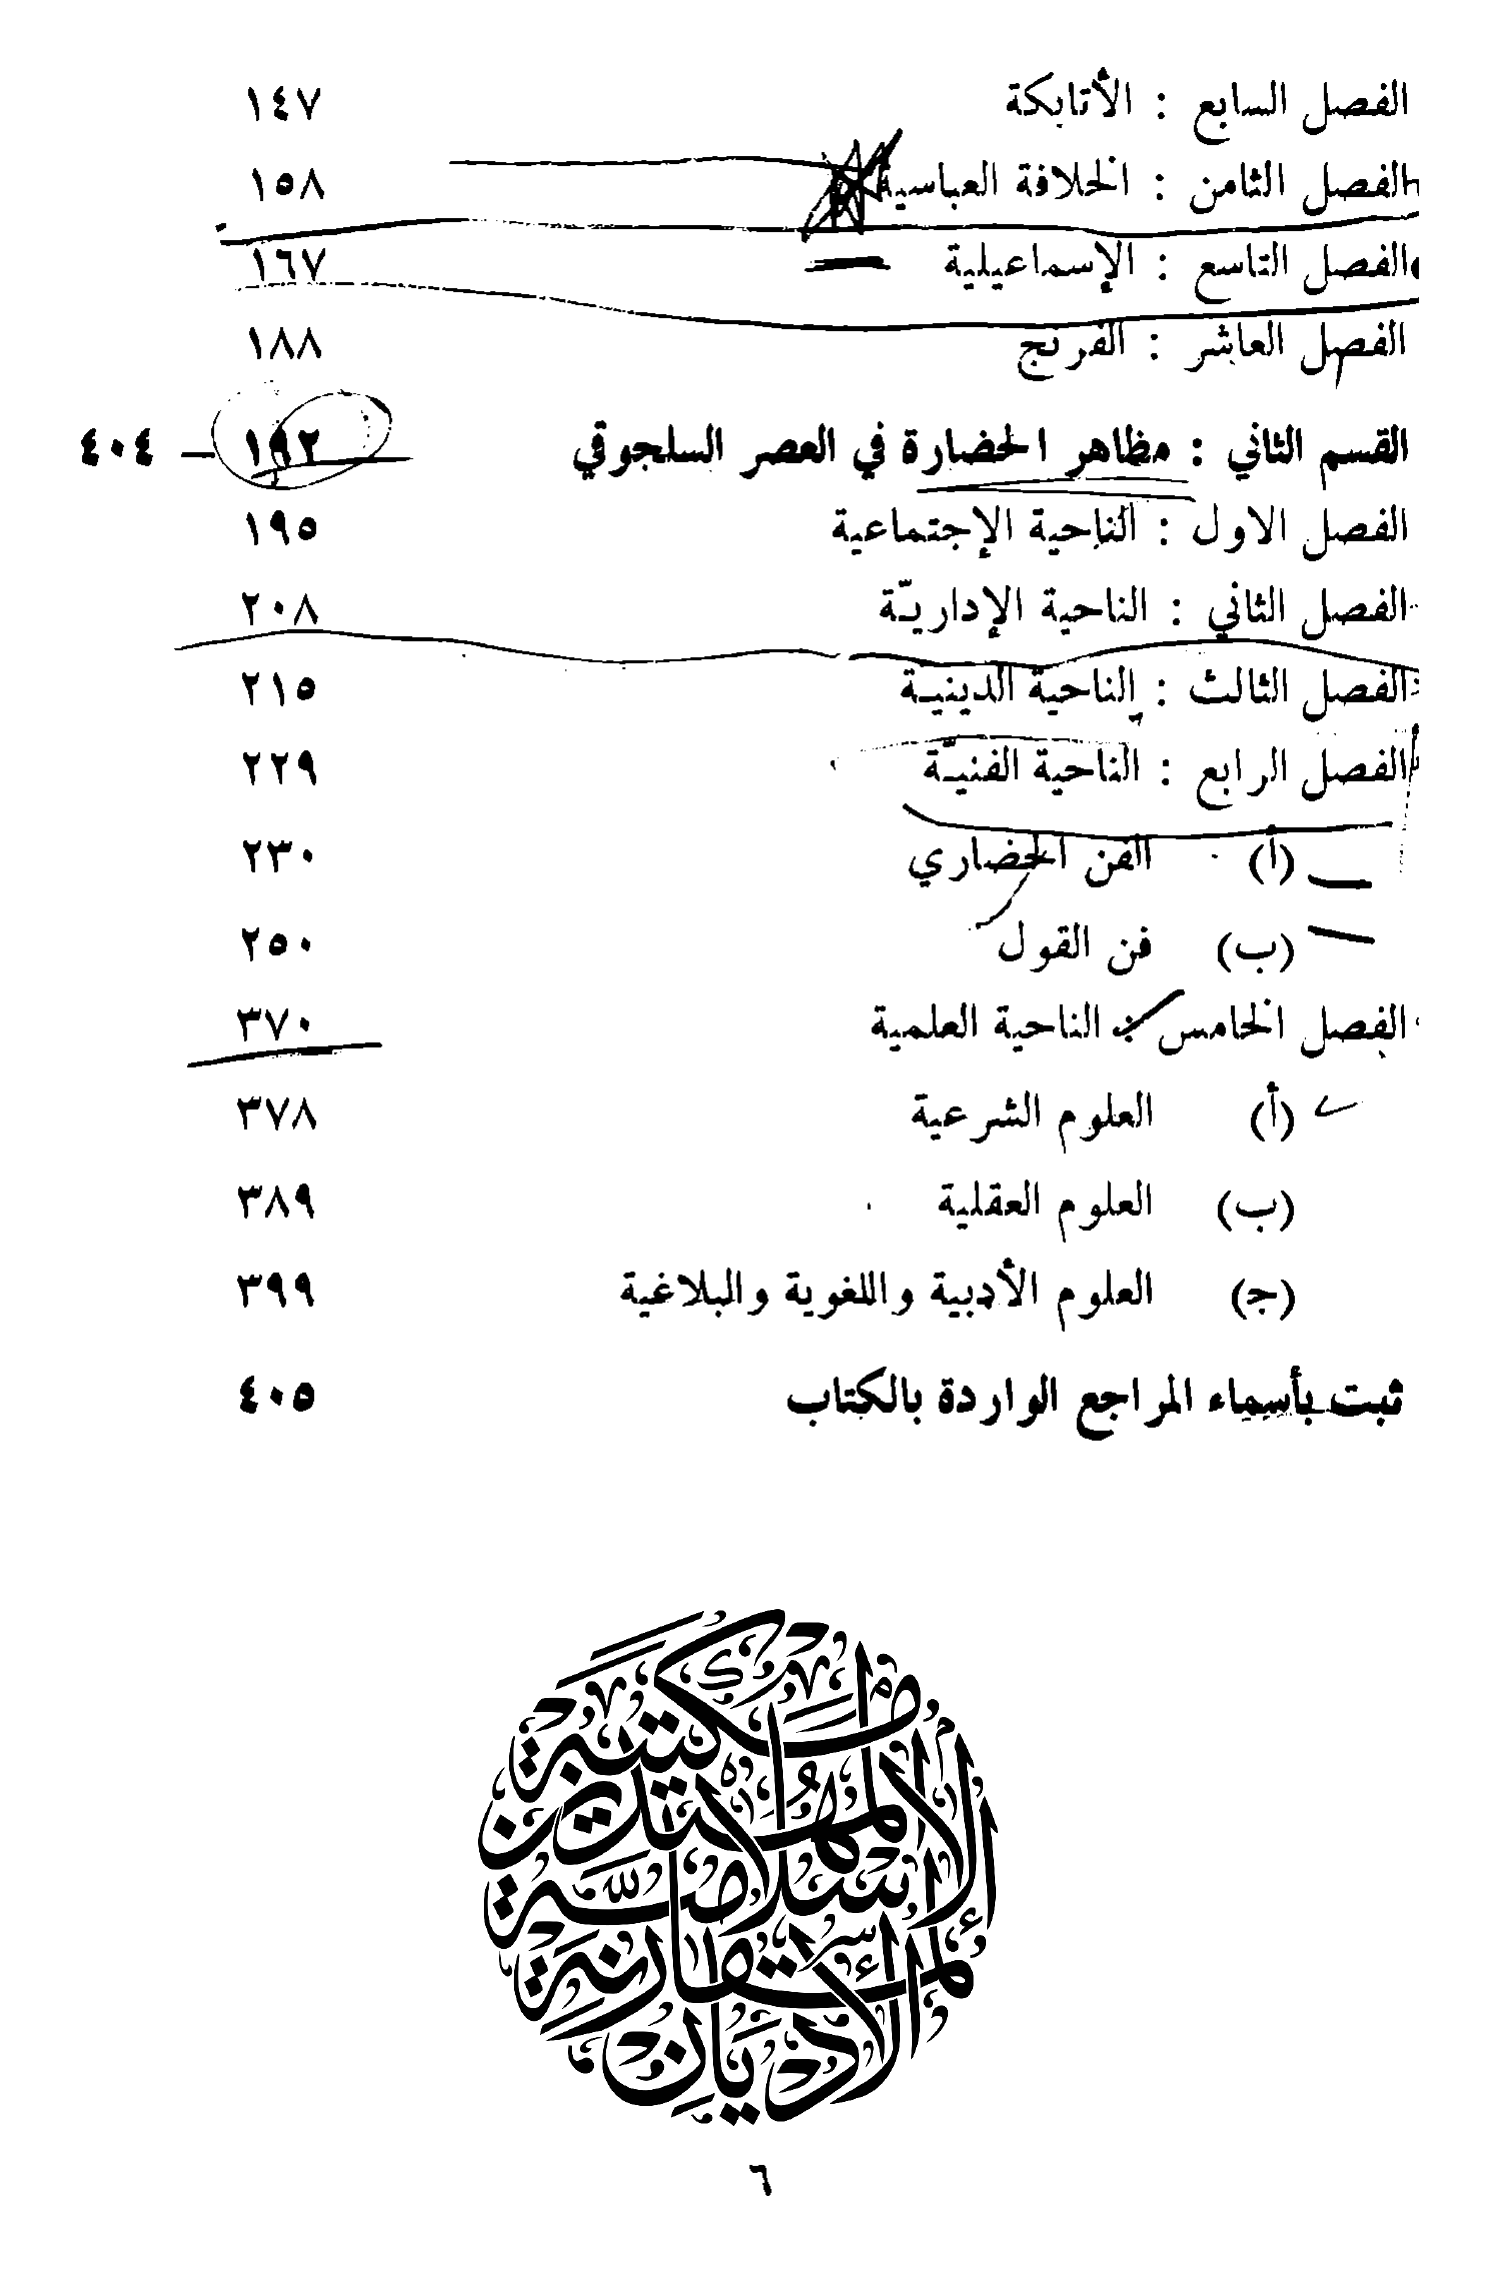 الفصل السابع : الأتابكة ١٤٧
الفصل الثامن : الخلافة العباسية ١٥٨
الفصل التاسع : الإسماعيلية ١٦٧
الفصل العاشر : الفرنج ١٨٨
القسم الثاني : مظاهر الحضارة في العصر السلجوقي ١٩٢ - ٤٠٤
الفصل الاول : الناحية الإجتماعية ١٩٥
الفصل الثاني : الناحية الإداريـّة ٢٠٨
الفصل الثالث : الناحية الدينيـة ٢١٥
الفصل الرابع : الناحية الفنيـّة ٢٢٩
(أ) الفن الحضاري ٢٣٠
(ب) فن القول ٢٥٠
الفصل الخامس : الناحية العلمية ٣٧٠
(أ) العلوم الشرعية ٣٧٨
(ب) العلوم العقلية ٣٨٩
(ج) العلوم الأدبية واللغوية والبلاغية ٣٩٩
ثبت بأسماء المراجع الواردة بالكتاب ٤٠٥
مكتبة
المهتدين
الإسلامية
لمقارنة
الأديان
٦